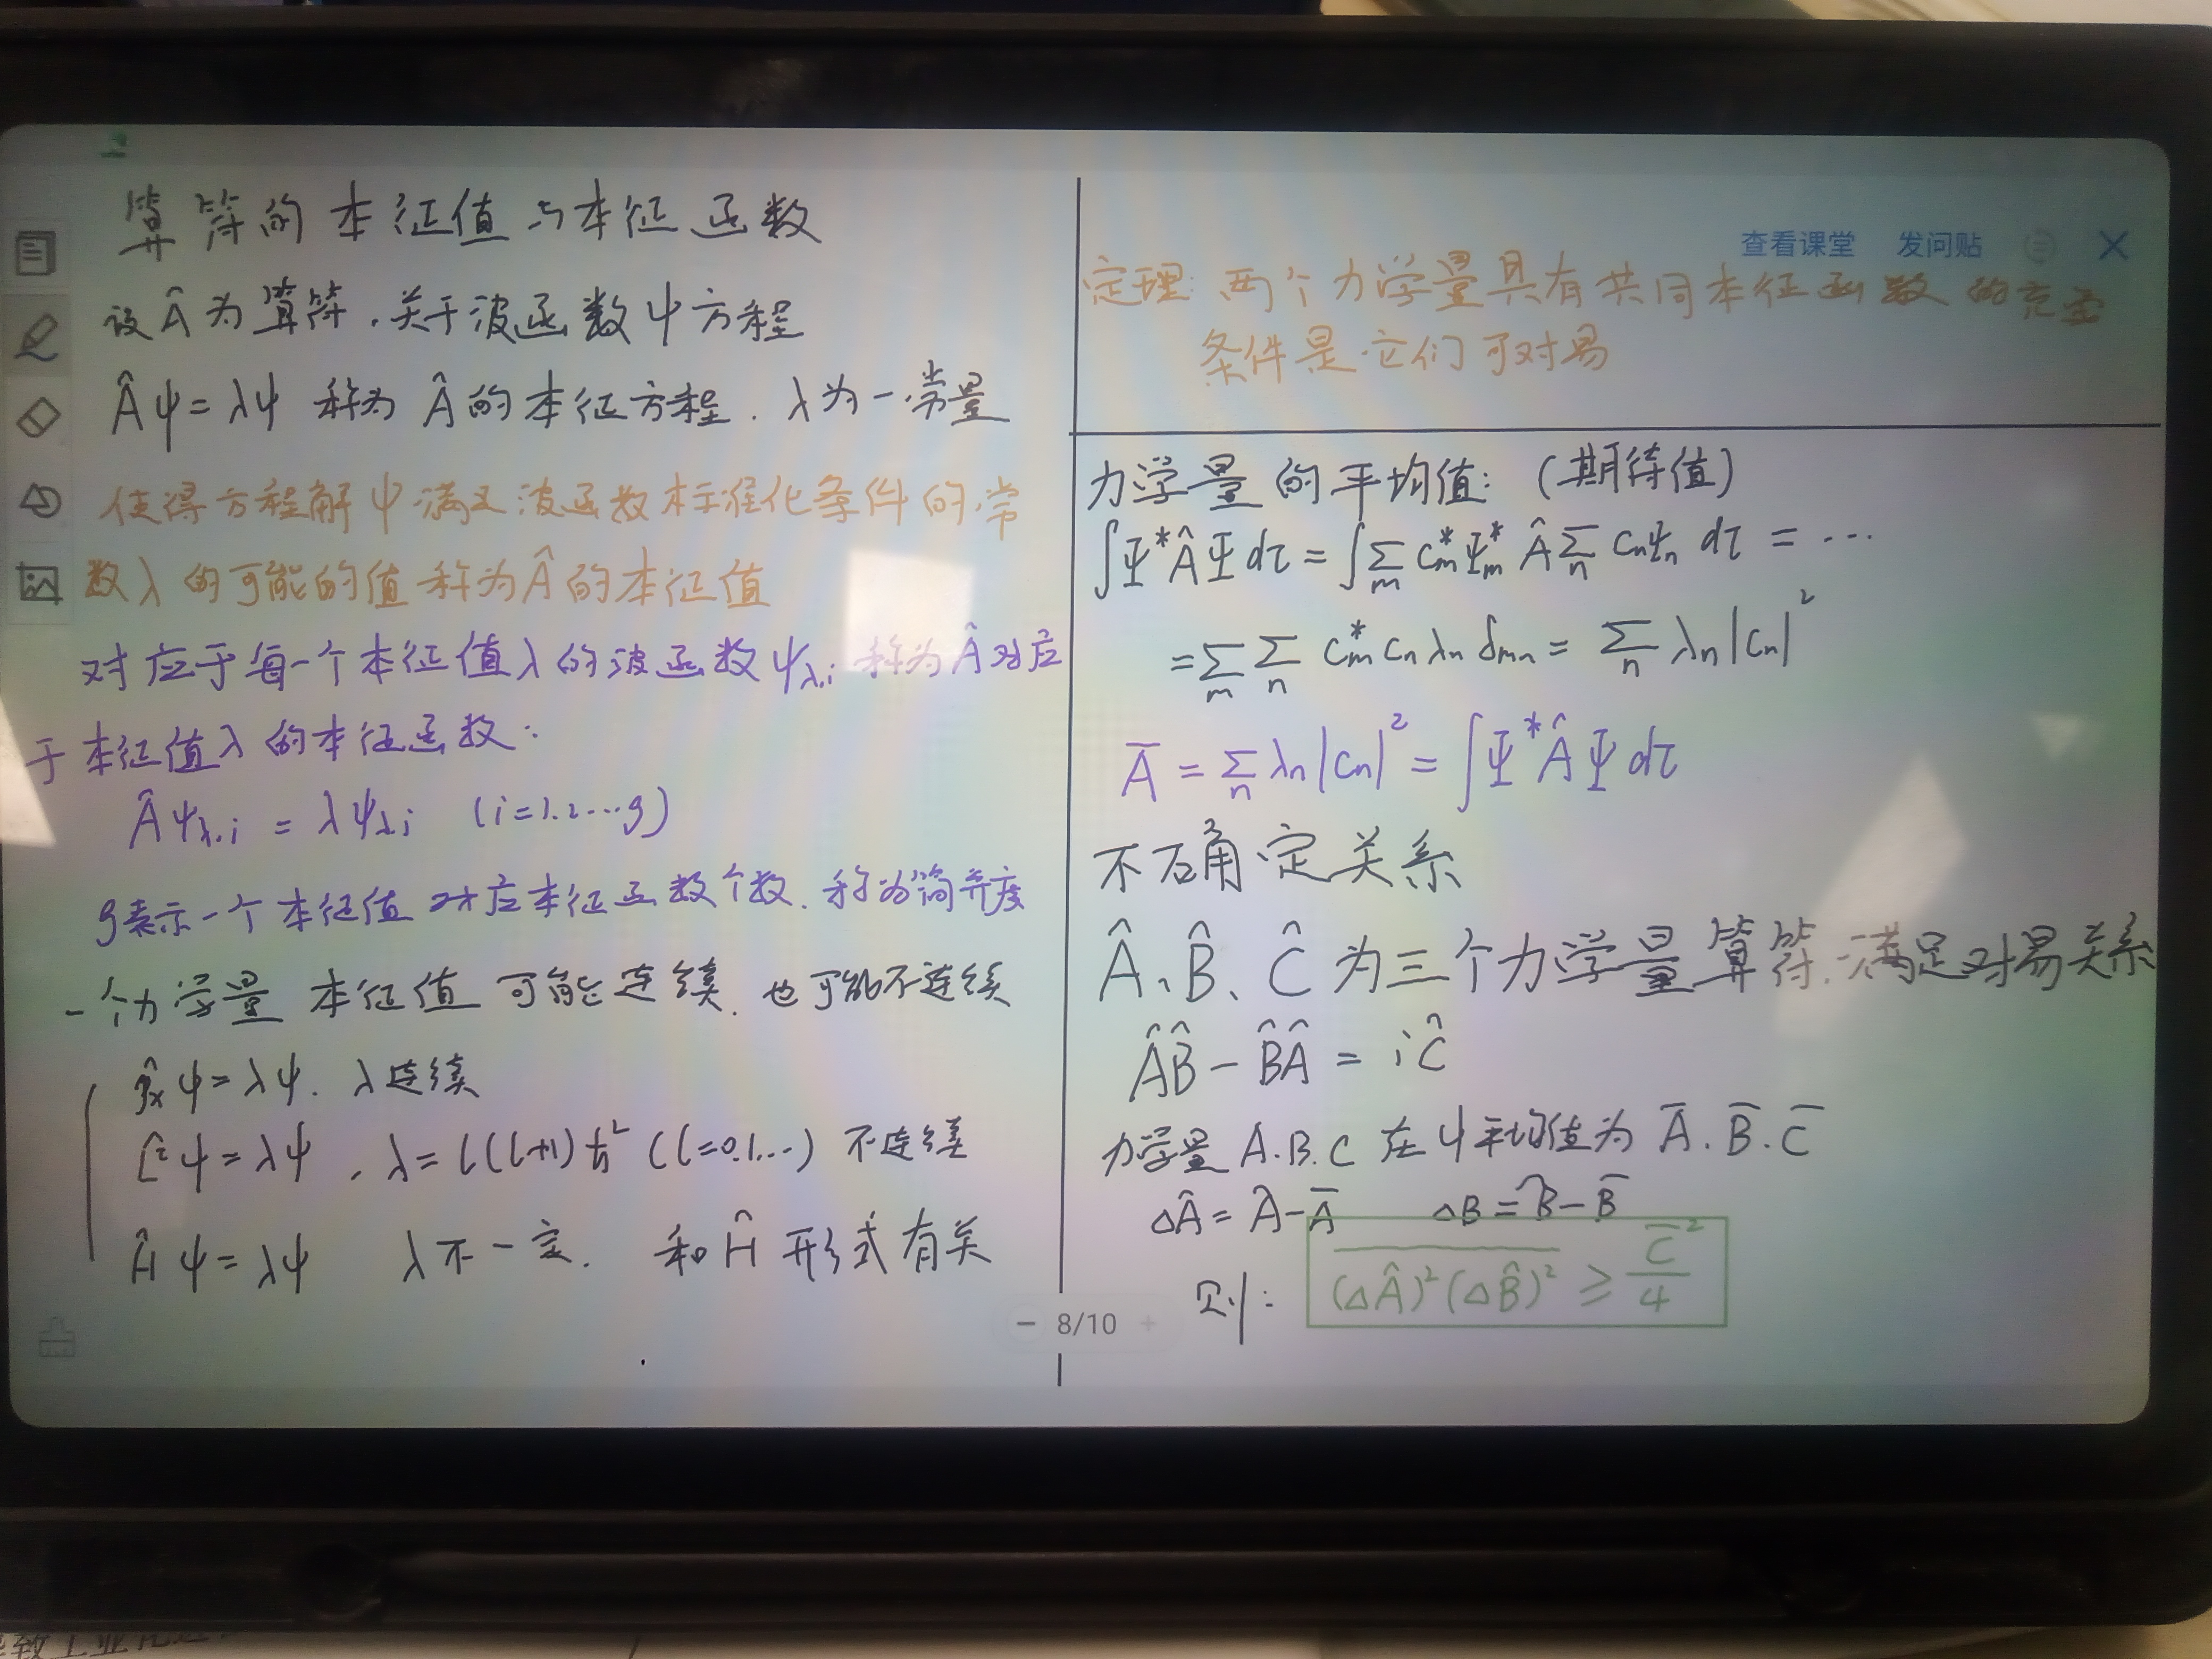 算符的本征值与本征函数
设Â为算符,关于波函数ψ方程
Âψ=λψ 称为Â的本征方程. λ为一常量
使得方程解ψ满足波函数标准化条件的常
数λ的可能的值称为Â的本征值
对应于每一个本征值λ的波函数ψλ,i 称为Â对应
于本征值λ的本征函数:
Âψλ,i = λψλ,i (i=1.2...g)
g表示一个本征值对应本征函数个数.称为简并度
一个力学量本征值可能连续.也可能不连续
p̂xψ=λψ. λ连续
L̂²ψ=λψ , λ=l(l+1)ħ² (l=0.1...) 不连续
Ĥψ=λψ λ不一定. 和Ĥ形式有关
查看课堂 发问贴
定理: 两个力学量具有共同本征函数的充要
条件是它们可对易
力学量的平均值: (期待值)
∫Ψ*ÂΨdτ = ∫∑m cm*Ψm* Â∑n cnψn dτ = ...
=∑m ∑n cm* cn λn δmn = ∑n λn|cn|²
A̅ = ∑n λn|cn|² = ∫Ψ*ÂΨdτ
不确定关系
Â、B̂、Ĉ为三个力学量算符.满足对易关系
ÂB̂-B̂Â = iĈ
力学量A.B.C在ψ平均值为A̅.B̅.C̅
ΔÂ=Â-A̅ ΔB=B̂-B̅
则: (ΔÂ)²(ΔB̂)² ≥ C̅²/4
8/10